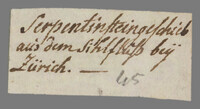 Serpentinsteingeschieb
aus dem Sihlfluß bey
Zürich. —
45